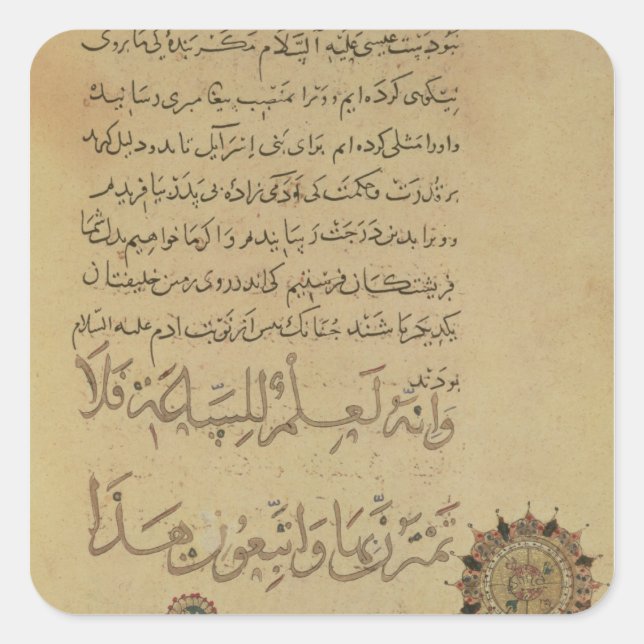 نبودست عیسی علیه السلام مکر بندهٔ کی ما بروی
نیکوی کرده ایم و ورا بمنصب پیغامبری رسانیده
و اورا مثلی کرده ام برای بنی إسرآیل تا بدو دلیل کیرند
بر قدرت و حکمت کی او دمی زادهٔ بی پدر بیافریدم
و ورا بدین درجت رسانیدم و اکر ما خواهیم بدل شما
فریشتکان فرستیم کی اندر روی زمین خلیفتان
یکدیکر باشند جنانک بس از نوبت ادم علیه السلام
بودند
وَإِنَّهُ لَعِلْمٌ لِلسَّاعَةِ فَلَا
تَمْتَرُنَّ بِهَا وَاتَّبِعُونِ هَذَا